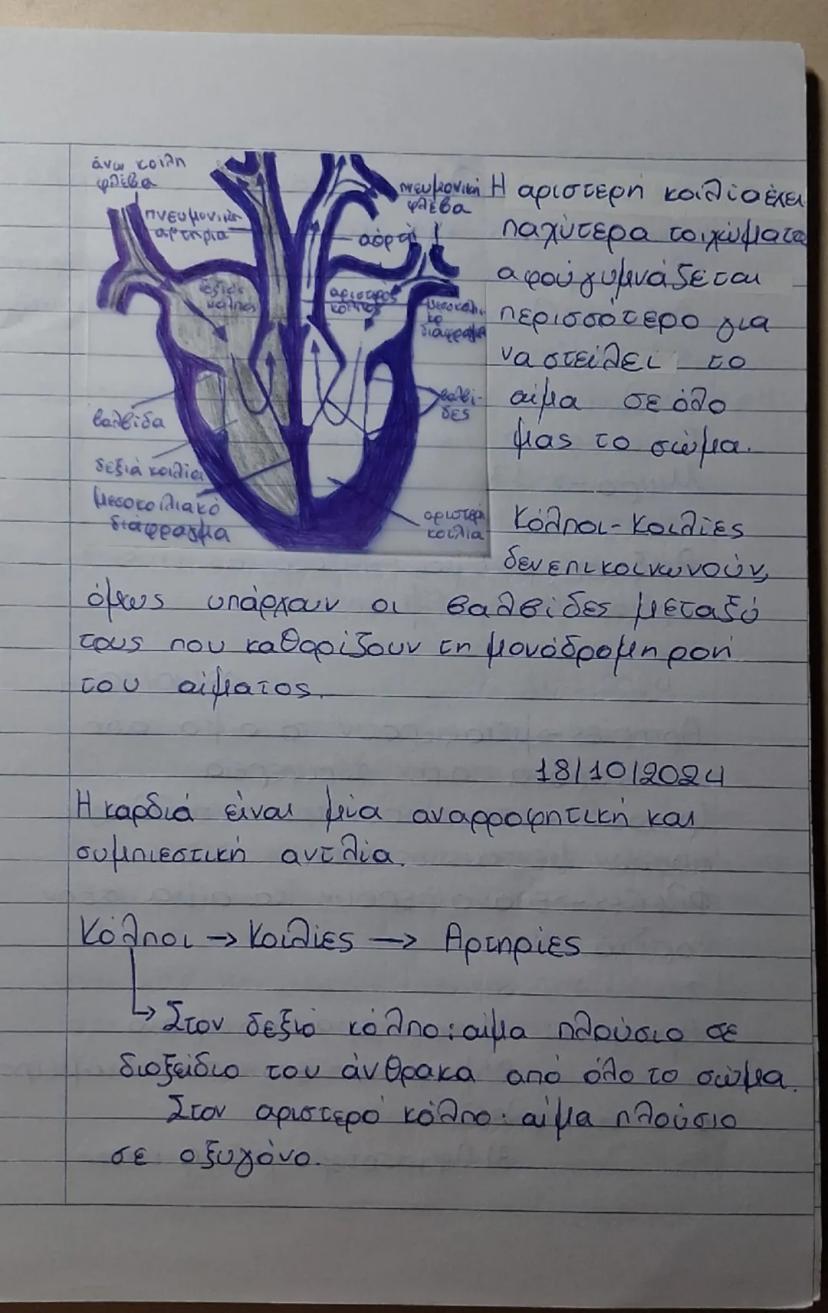 άνω κοίλη
φλέβα
πνευμονική
αρτηρία
πνευμονική
φλέβα
αορτή
δεξιός
κόλπος
αριστερός
κόλπος
μεσοκολπι-
κό
διάφραγμα
βαλβίδα
βαλβί-
δες
δεξιά κοιλία
μεσοκοιλιακό
διάφραγμα
αριστερή
κοιλία
Η αριστερή κοιλία έχει
παχύτερα τοιχώματα
αφού γυμνάζεται
περισσότερο για
να στείλει το
αίμα σε όλο
μας το σώμα.
Κόλποι-Κοιλίες
δεν επικοινωνούν,
όμως υπάρχουν οι βαλβίδες μεταξύ
τους που καθορίζουν τη μονόδρομη ροή
του αίματος.
18/10/2024
Η καρδιά είναι μία αναρροφητική και
συμπιεστική αντλία.
Κόλποι → Κοιλίες → Αρτηρίες
↳ Στον δεξιό κόλπο: αίμα πλούσιο σε
διοξείδιο του άνθρακα από όλο το σώμα.
Στον αριστερό κόλπο: αίμα πλούσιο
σε οξυγόνο.